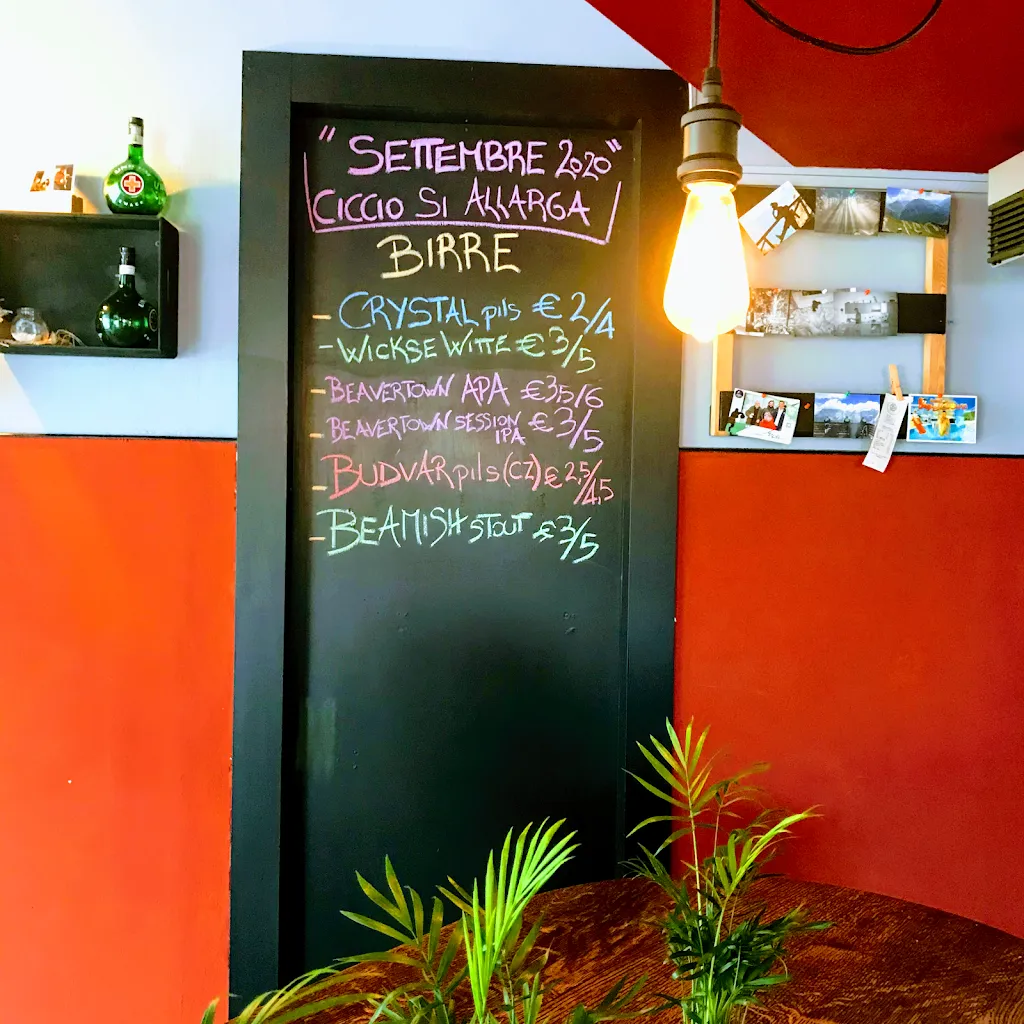 "SETTEMBRE 2020"
CICCIO SI ALLARGA
BIRRE
- CRYSTAL pils € 2/4
- WICKSE WITTE € 3/5
- BEAVERTOWN APA € 3,5/6
- BEAVERTOWN SESSION IPA € 3/5
- BUDVAR pils (CZ) € 2,5/4,5
- BEAMISH STOUT € 3/5